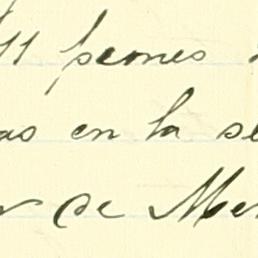 11 peones
as en la se
r de Me